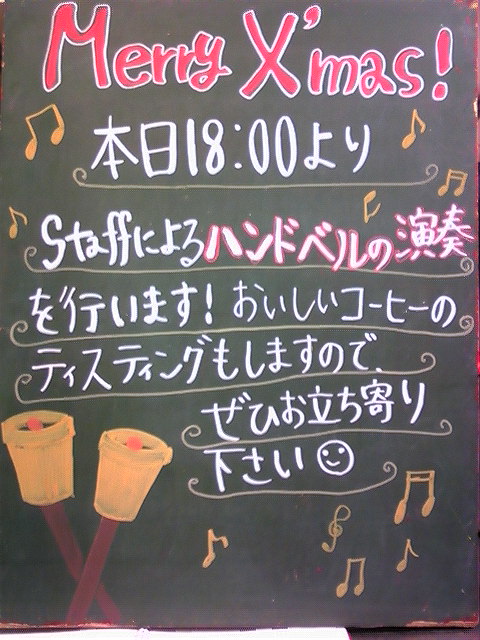 Merry X'mas!
本日18:00より
Staffによるハンドベルの演奏
を行います! おいしいコーヒーの
ティスティングもしますので、
ぜひお立ち寄り
下さい